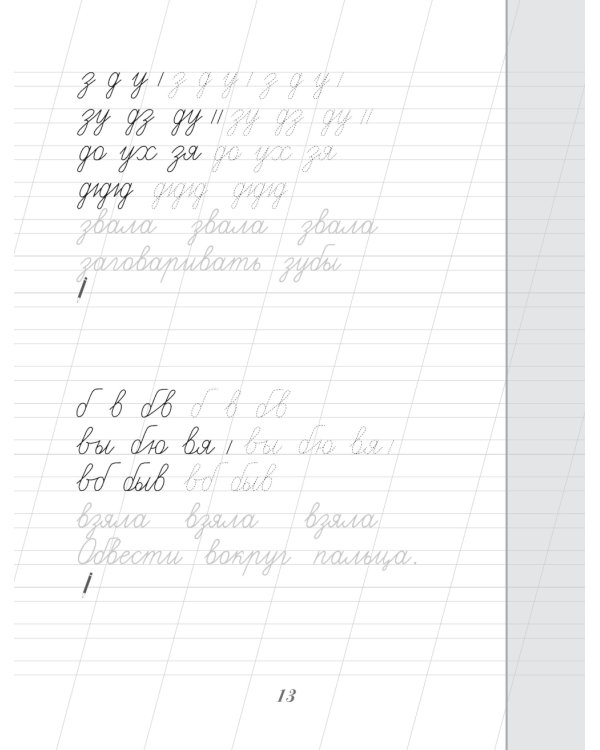 з д у / з д у / з д у /
зу дз ду // зу дз ду //
до ух зя до ух зя
дідід дідід дідід
звала звала звала
заговаривать зубы
б в бв б в бв
вы бю вя / вы бю вя /
вб быв вб быв
взяла взяла взяла
Обвести вокруг пальца.
13